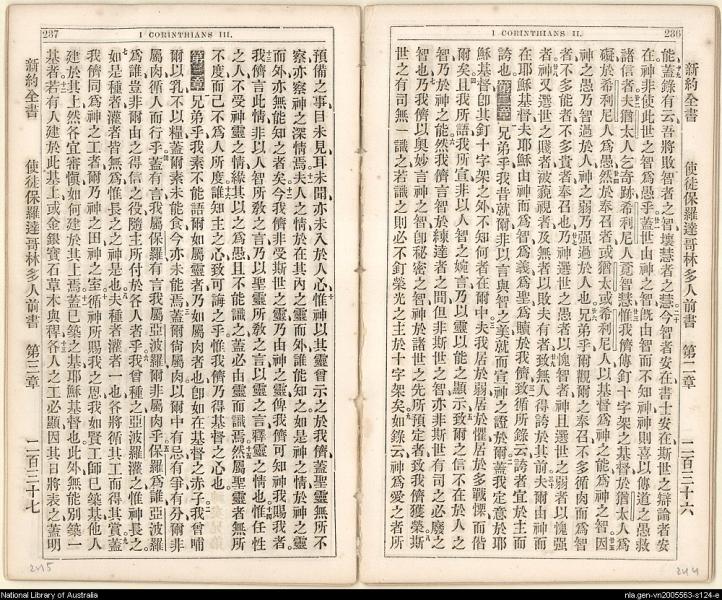 236
I CORINTHIANS II.
新約全書 使徒保羅達哥林多人前書 第二章 二百三十六
能蓋錄有云吾將敗智者之智壞慧者之慧今智者安在書士安在斯世之辯論者安
在神非使此世之智爲愚乎蓋世由神之智既由智而不知神神則喜以傳道之愚救
諸信者夫猶太人乞奇跡希利尼人覓智慧惟我儕傳釘十字架之基督於猶太人爲
礙於希利尼人爲愚然於奉召者或猶太或希利尼人以基督爲神之能爲神之智因
神之愚乃智過於人神之弱乃强過於人也兄弟乎爾觀爾之奉召不多循肉而爲智
者不多能者不多貴者奉召也乃神選世之愚者以愧智者神且選世之弱者以愧强
者神又選世之賤者被藐視者及無者以敗夫有者致無人得誇於其前夫爾由神而
在耶穌基督夫耶穌由神而爲智爲義爲聖爲贖於我儕致循所錄云誇者宜於主而
誇也第二章兄弟乎我昔就爾非以言與智之美就而宣神之證於爾蓋我定意於耶
穌基督卽其釘十字架之外不知何者在爾中夫我居於弱居於懼居於多戰慄而偕
爾矣且我所語我所宣非以人智之婉言乃以靈以能之顯示致爾之信不在於人之
智乃於神之能然我儕言智於練達者之間但非斯世之智亦非斯世有司之必廢之
智也乃我儕以奧妙言神之智卽秘密之智神於諸世之先所預定者致我儕獲榮斯
世之有司無一識之若識之則必不釘榮光之主於十字架矣如錄云神爲愛之者所
237
I CORINTHIANS III.
預備之事目未見耳未聞亦未入於人心惟神以其靈曾示之於我儕蓋聖靈無所不
察亦察神之深情焉夫人之情於在其內之靈而外誰能知之如是神之情於神之靈
而外亦無能知之者矣今我儕非受斯世之靈乃由神之靈俾我儕可知神我賜我者
我儕言此情非以人智所敎之言乃以聖靈所敎之言以靈之言釋靈之情也惟任性
之人不受神靈之情緣其以之爲愚且不能識之蓋必由靈而識焉然屬聖靈者無所
不度而己不爲人所度誰知主之心致可誨之乎惟我儕乃得基督之心也
第三章兄弟乎我素不能語爾如屬靈者乃如屬肉者也卽如在基督之赤子我曾哺
爾以乳不以糧蓋爾素未能食今亦未能焉蓋爾尙屬肉以爾中有忌有爭有分爾非
屬肉循人而行乎蓋有言我屬保羅有言我屬亞波羅爾非屬肉乎保羅爲誰亞波羅
爲誰豈非爾由之得信之役隨主所付於各人者乎我曾種之亞波羅灌之惟神長之
如是種者灌者皆無爲惟長之之神是也夫種者灌者一也各將循其工而得其賞蓋
我儕同爲神之工者爾乃神之田神之室循神所賜我之恩我如賢工師已築基他人
建於其上然各宜審愼如何建於其上焉蓋已築之基耶穌基督也此外無能別築一
基者若有人建於此基上或金銀寶石草木與稭各人之工必顯因其日將表之蓋明
新約全書 使徒保羅達哥林多人前書 第三章 二百三十七
245
244
National Library of Australia
nla.gen-vn2005563-s124-e